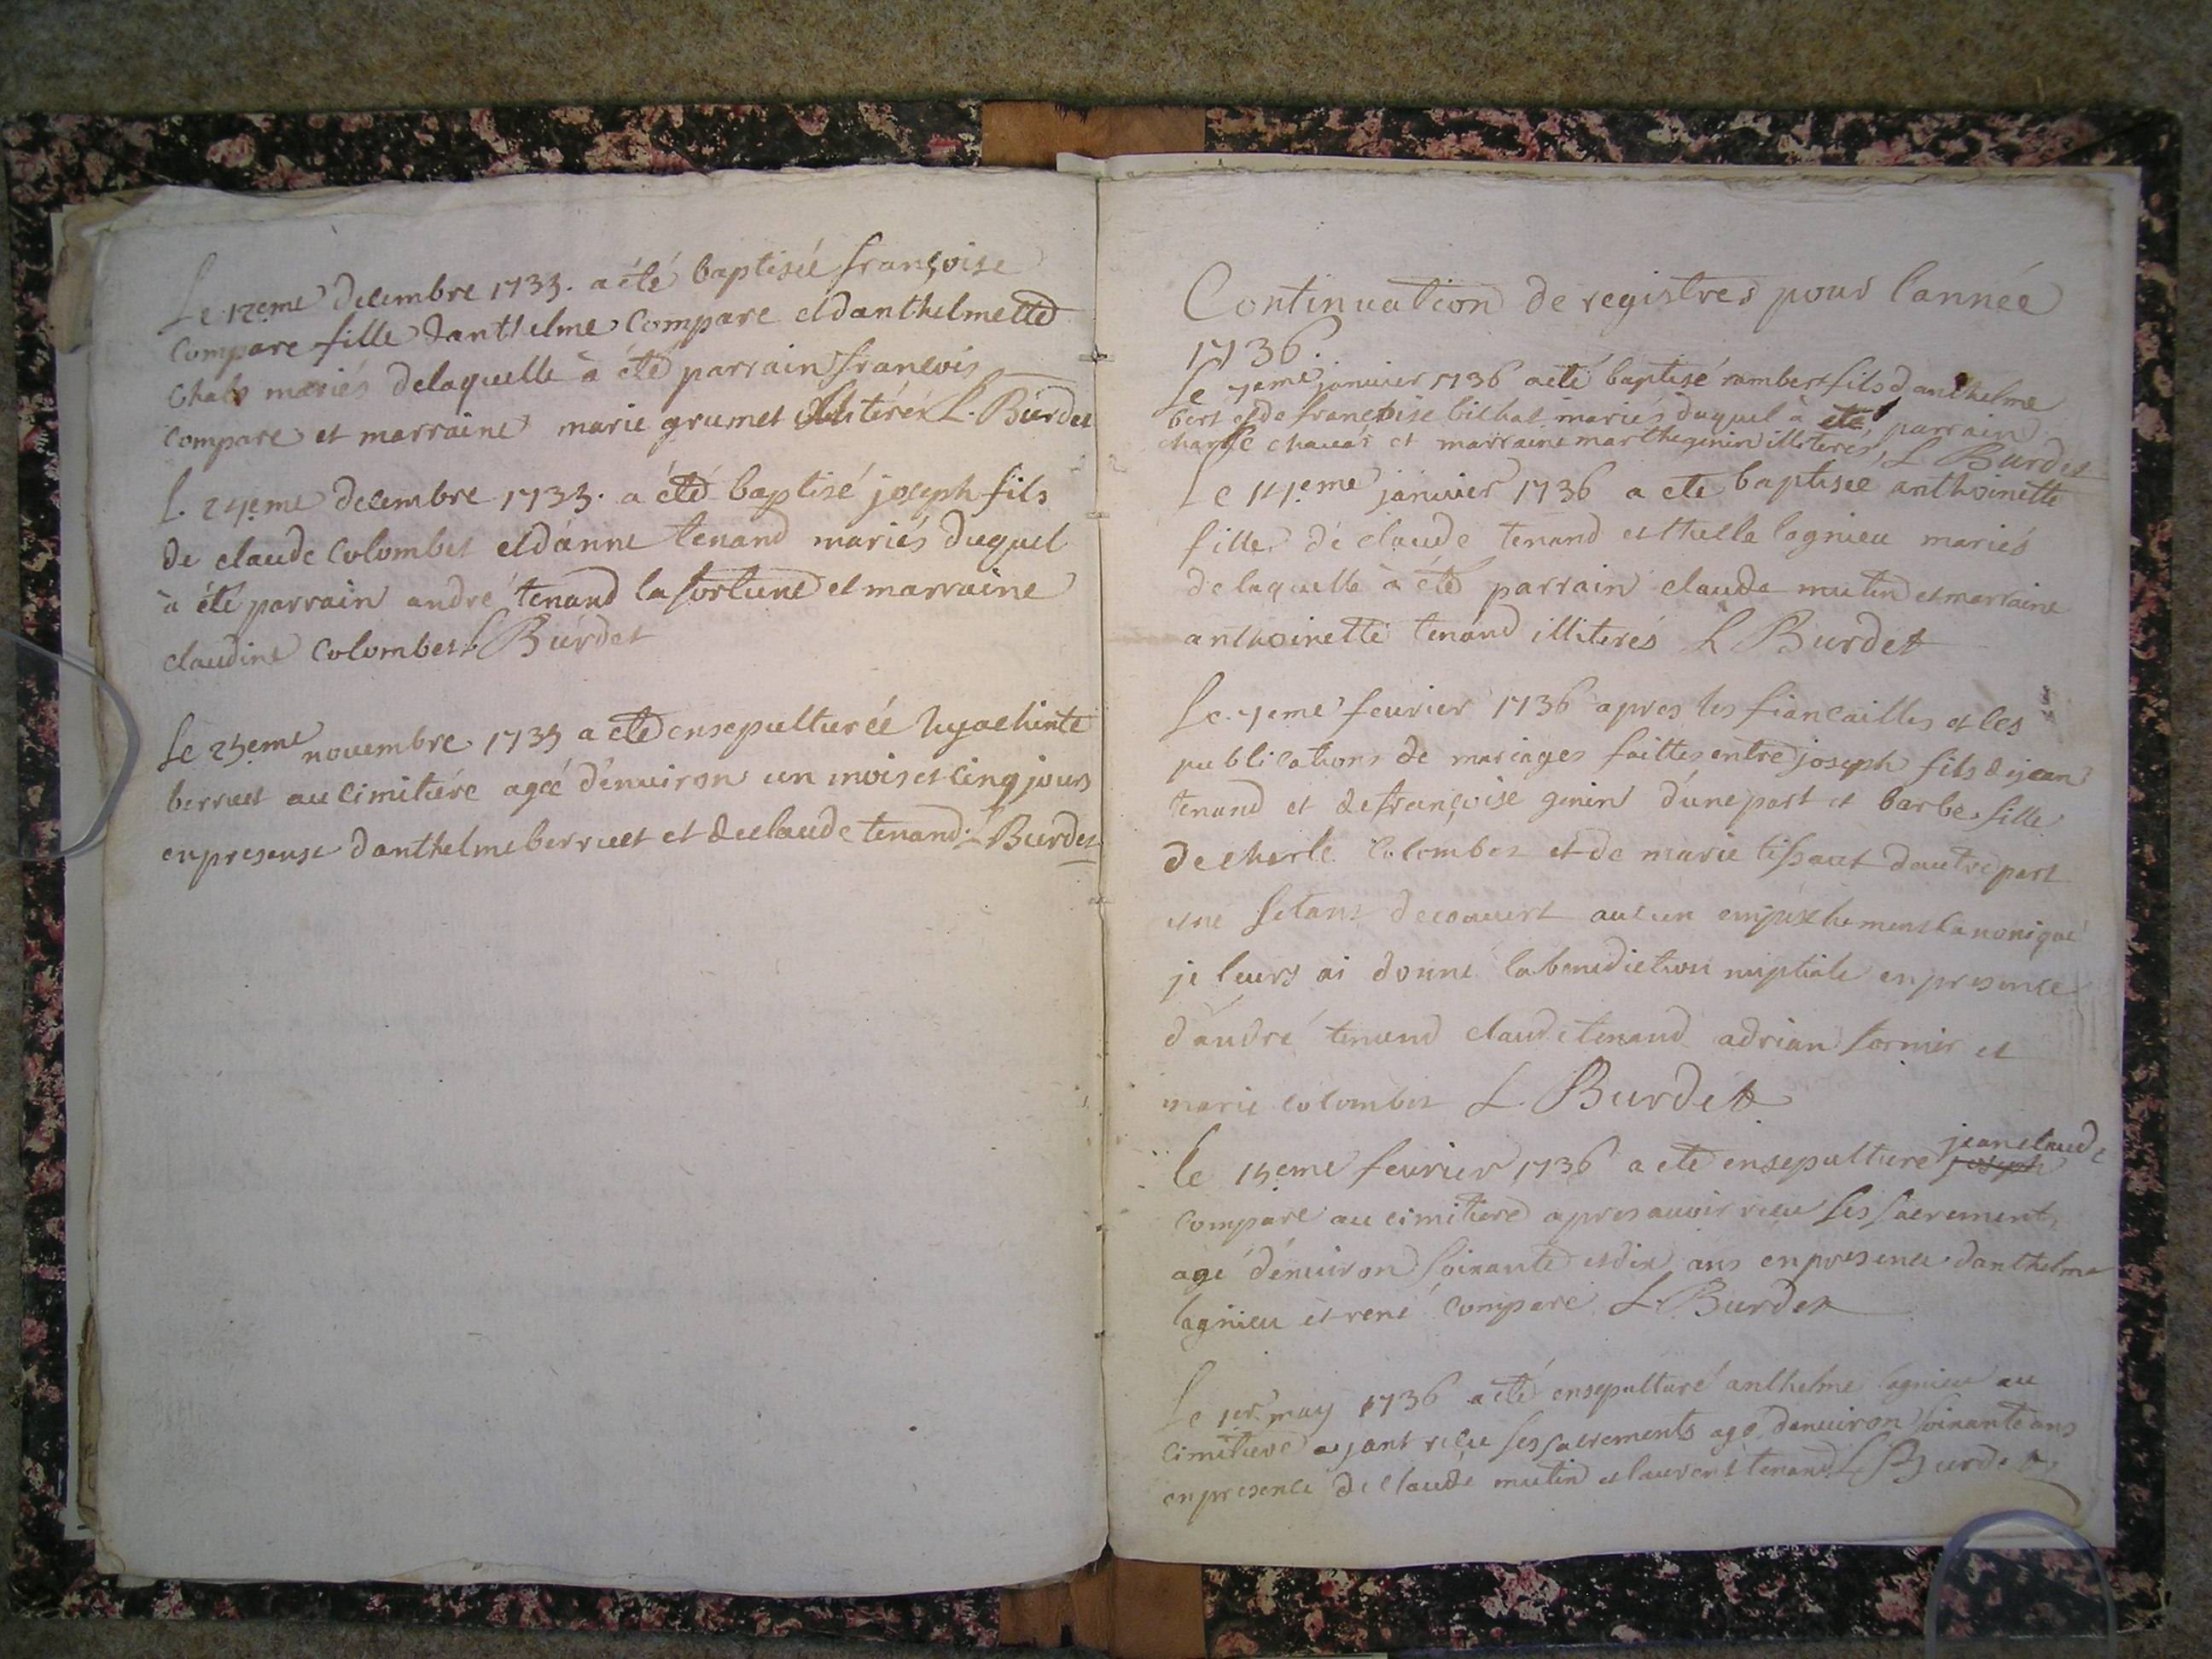 Le 12eme decembre 1735. a été baptisée françoise
Compare fille danthelme Compare et danthelmette
Chals mariés delaquelle à été parrain françois
Compare et marraine marie grumet illiterés L. Burdet
L. 24eme decembre 1735. a été baptisé joseph fils
de claude Colombet et dánne tenand mariés duquel
à été parrain andré tenand la fortune et marraine
claudine Colombet L Burdet
Le 25eme novembre 1735 a eté ensepulturée hyachinte
berruet au cimitiére agée d'enuiron un mois et cinq jours
en presense danthelme berruet et de claude tenand. L Burdet
Continuation de registres pour l'année
1736.
Le 7eme januier 1736 a eté baptisé rambert fils d'anthelme
bert et de françoise bichat mariés duquel à été parrain
charle chauar et marraine marthe genin illiterés, L Burdet
Le 14eme januier 1736 a eté baptisée anthoinette
fille dé claude tenand et lagnieu mariés
de laquelle à été parrain claude mutin et marraine
anthoinette tenand illiterés L Burdet
Le 7eme feurier 1736 apres les fiancailles et les
publications de mariages faittes entre joseph fils de jean
tenand et de françoise genin d'une part et barbe fille
de charle Colombet et de marie tissaut dautre part
et ne setant decouuert aucun empéschement canonique
je leurs ai donné la benediction nuptiale en presence
d'andré tenand claude tenand adrian fornier et
marie colombet L. Burdet
le 15eme feurier 1736 a eté ensepulturé joseph jean claude
Compare au cimitiere apres auoir reçu ses sacrements
agé d'enuiron soixante et dix ans en presence d'anthelme
lagnieu et rené Compare L. Burdet
Le 1er may 1736 a été ensepulturé anthelme lagnieu au
cimitiere ayant reçu ses sacrements agé denuiron soixante ans
en presence de claude mutin et laurent tenand L Burdet